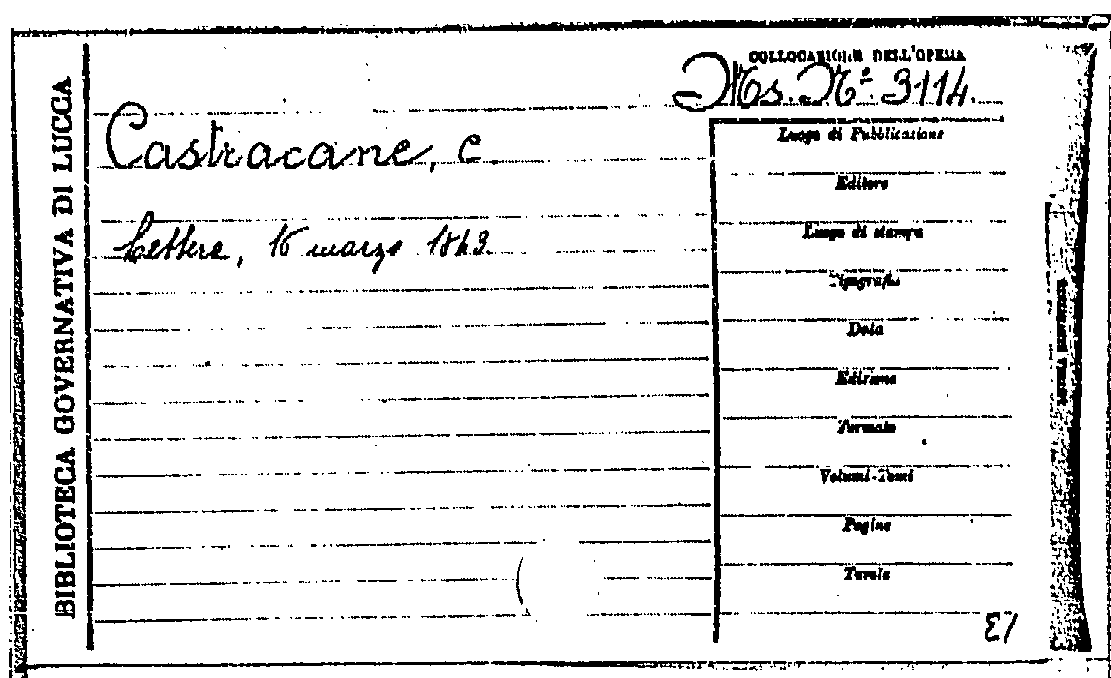 BIBLIOTECA GOVERNATIVA DI LUCCA
COLLOCAZIONE DELL'OPERA
Ms. N.º 3114.
Castracane, C.
Lettera, 16 marzo 1843.
Luogo di Pubblicazione
Editore
Luogo di stampa
Tipografia
Data
Edizione
Formato
Volumi-Tomi
Pagine
Tavole